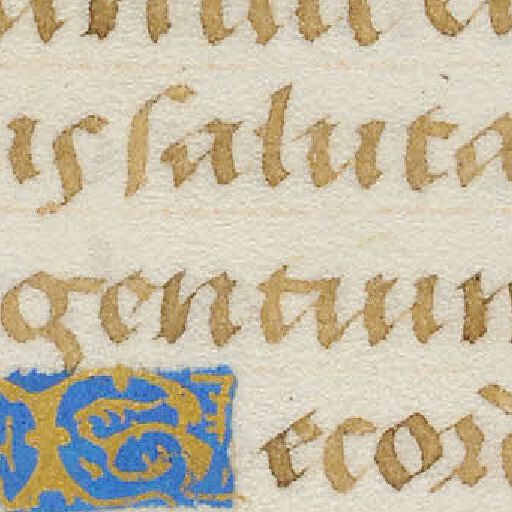 is saluta
gentium
Recor